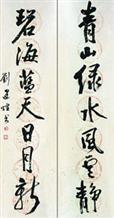 青山绿水风云静
碧海蓝天日月新